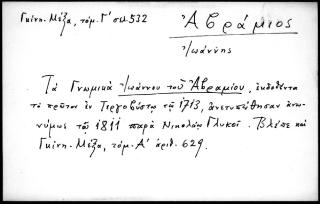 Γκίνη-Μέξα, τόμ. Γ' σελ. 532
Ἀβράμιος
Ἰωάννης
Τὰ Γνωμικὰ Ἰωάννου τοῦ Ἀβραμίου, ἐκδοθέντα
τὸ πρῶτον ἐν Τεργοβύστῳ τῷ 1713, ἀνετυπώθησαν ἀνω-
νύμως τῷ 1811 παρὰ Νικολάῳ Γλυκεῖ. Βλέπε καὶ
Γκίνη-Μέξα, τόμ. Α' ἀριθ. 629.